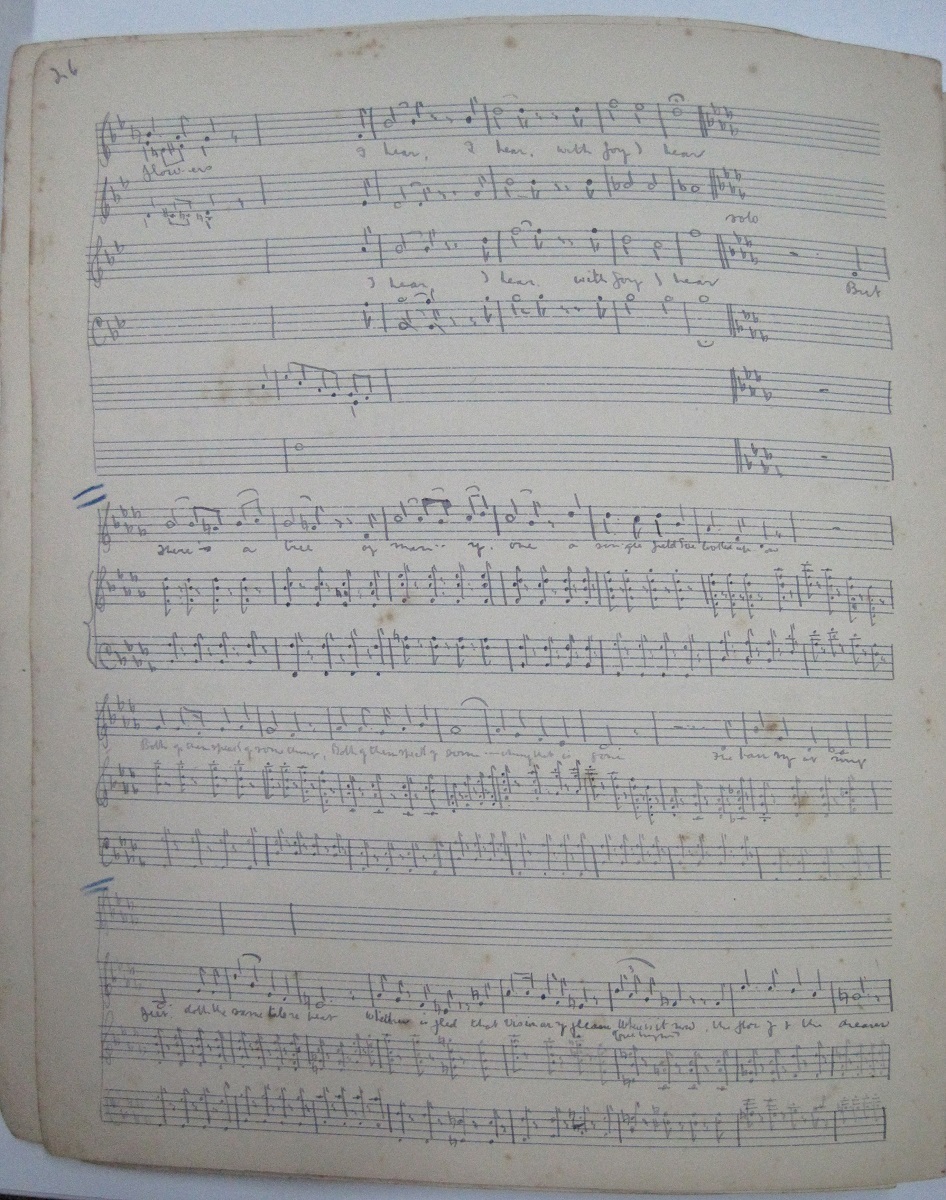 26
flow-ers
I hear, I hear, with Joy I hear
solo
I hear, I hear, with Joy I hear But
there's a tree of man-- y, one a single field I've looked up on
Both of them speak of some thing, Both of them speak of some ---- thing that is gone The Pansy at my
feet doth the same tale repeat Whither is fled that visionary gleam, Where is it now, the glory & the dream